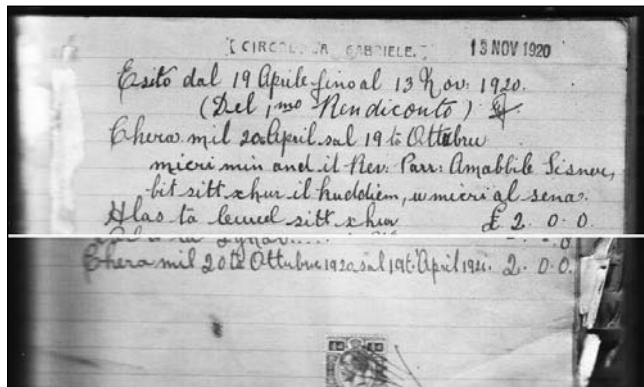 [CIRCOLO GABRIELE.] 13 NOV 1920
Esito dal 19 Aprile fino al 13 Nov. 1920.
(Del 1mo Rendiconto)
Chera mil 20 April sal 19 ta Ottubru
micri min and il Rev: Parr: Amabbile Sisner,
bit sitt xhur il huddiem, u micri al sena.
Hlas ta leuuel sitt xhur £ 2. 0. 0
Chera mil 20 ta Ottubru 1920, sal 19 t'April 1921. 2. 0. 0.